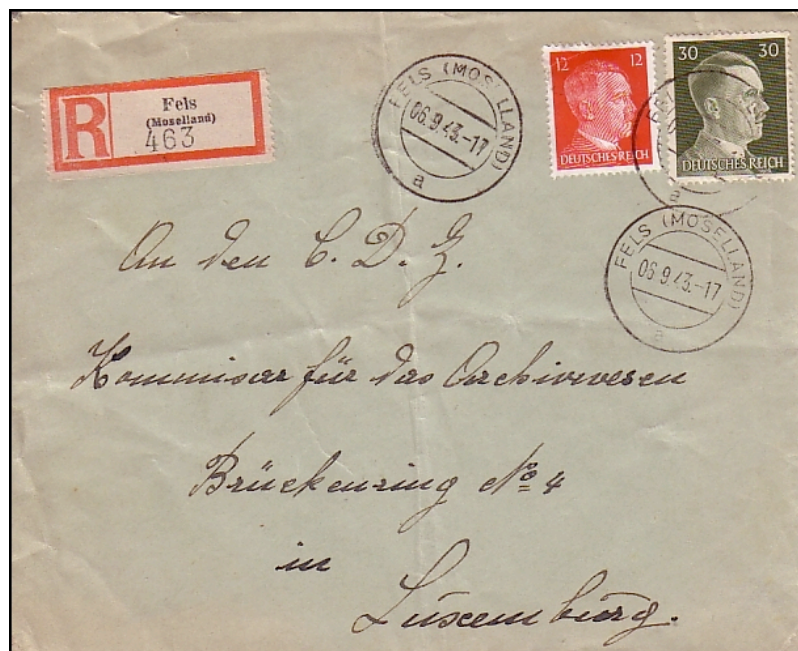 R
Fels
(Moselland)
463
FELS (MOSELLAND)
06.9.43.-17
a
12 12
DEUTSCHES REICH
30 30
DEUTSCHES REICH
FELS (MOSELLAND)
06.9.43.-17
a
An den C. D. Z.
Kommissar für das Archivwesen
Brückenring No 4
in
Luxemburg.